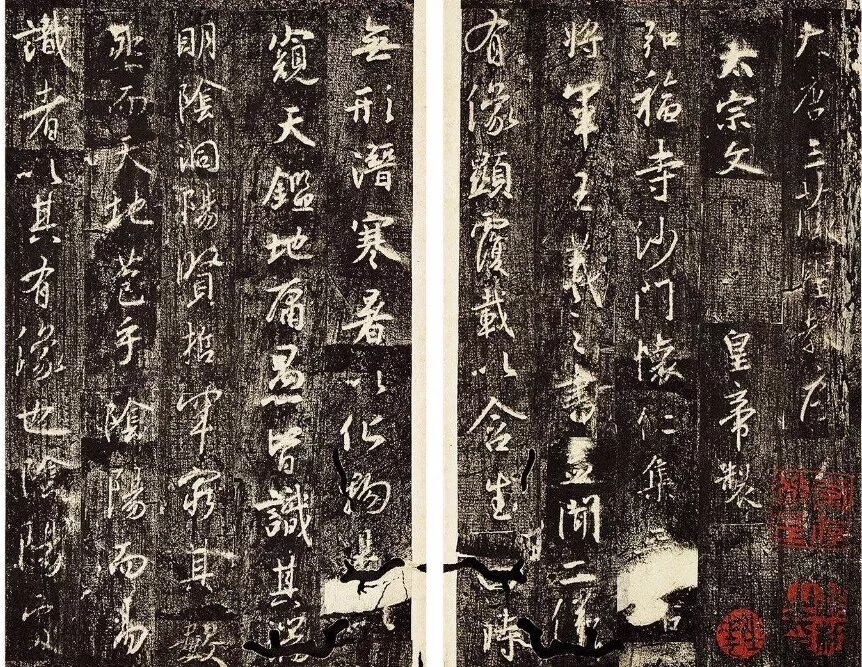 大唐三藏聖教序
太宗文皇帝製
弘福寺沙門懷仁集右
將軍王羲之書蓋聞二儀
有像顯覆載以含生四時
無形潛寒暑以化物是
窺天鑑地庸愚皆識其端
明陰洞陽賢哲罕窮其數
然而天地苞乎陰陽而易
識者以其有像也陰陽處